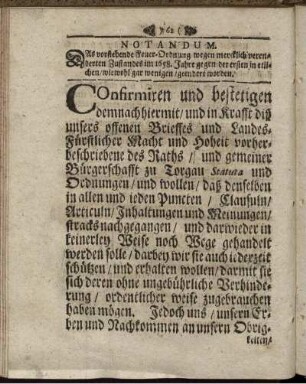 )( 62 )(
NOTANDUM.
DAs vorstehende Feuer-Ordnung wegen mercklich veren-
derten Zustandes im 1658. Jahre gegen der ersten in etli-
chen / wiewohl gar wenigen / geendert worden.
COnfirmiren und bestetigen
demnach hiermit / und in Krafft diß
unsers offenen Brieffes und Landes-
Fürstlicher Macht und Hoheit vorher-
beschriebene des Raths / und gemeiner
Bürgerschafft zu Torgau Statuta und
Ordnungen / und wollen / daß denselben
in allen und ieden Puncten / Clausuln /
Articuln / Inhaltungen und Meinungen /
stracks nachgegangen / und darwieder in
keinerley Weise noch Wege gehandelt
werden solle / darbey wir sie auch iederzeit
schützen / und erhalten wollen / darmit sie
sich deren ohne ungebührliche Verhinde-
rung / ordentlicher weise zugebrauchen
haben mögen. Jedoch uns / unsern Er-
ben und Nachkommen an unsern Obrig-
keiten /